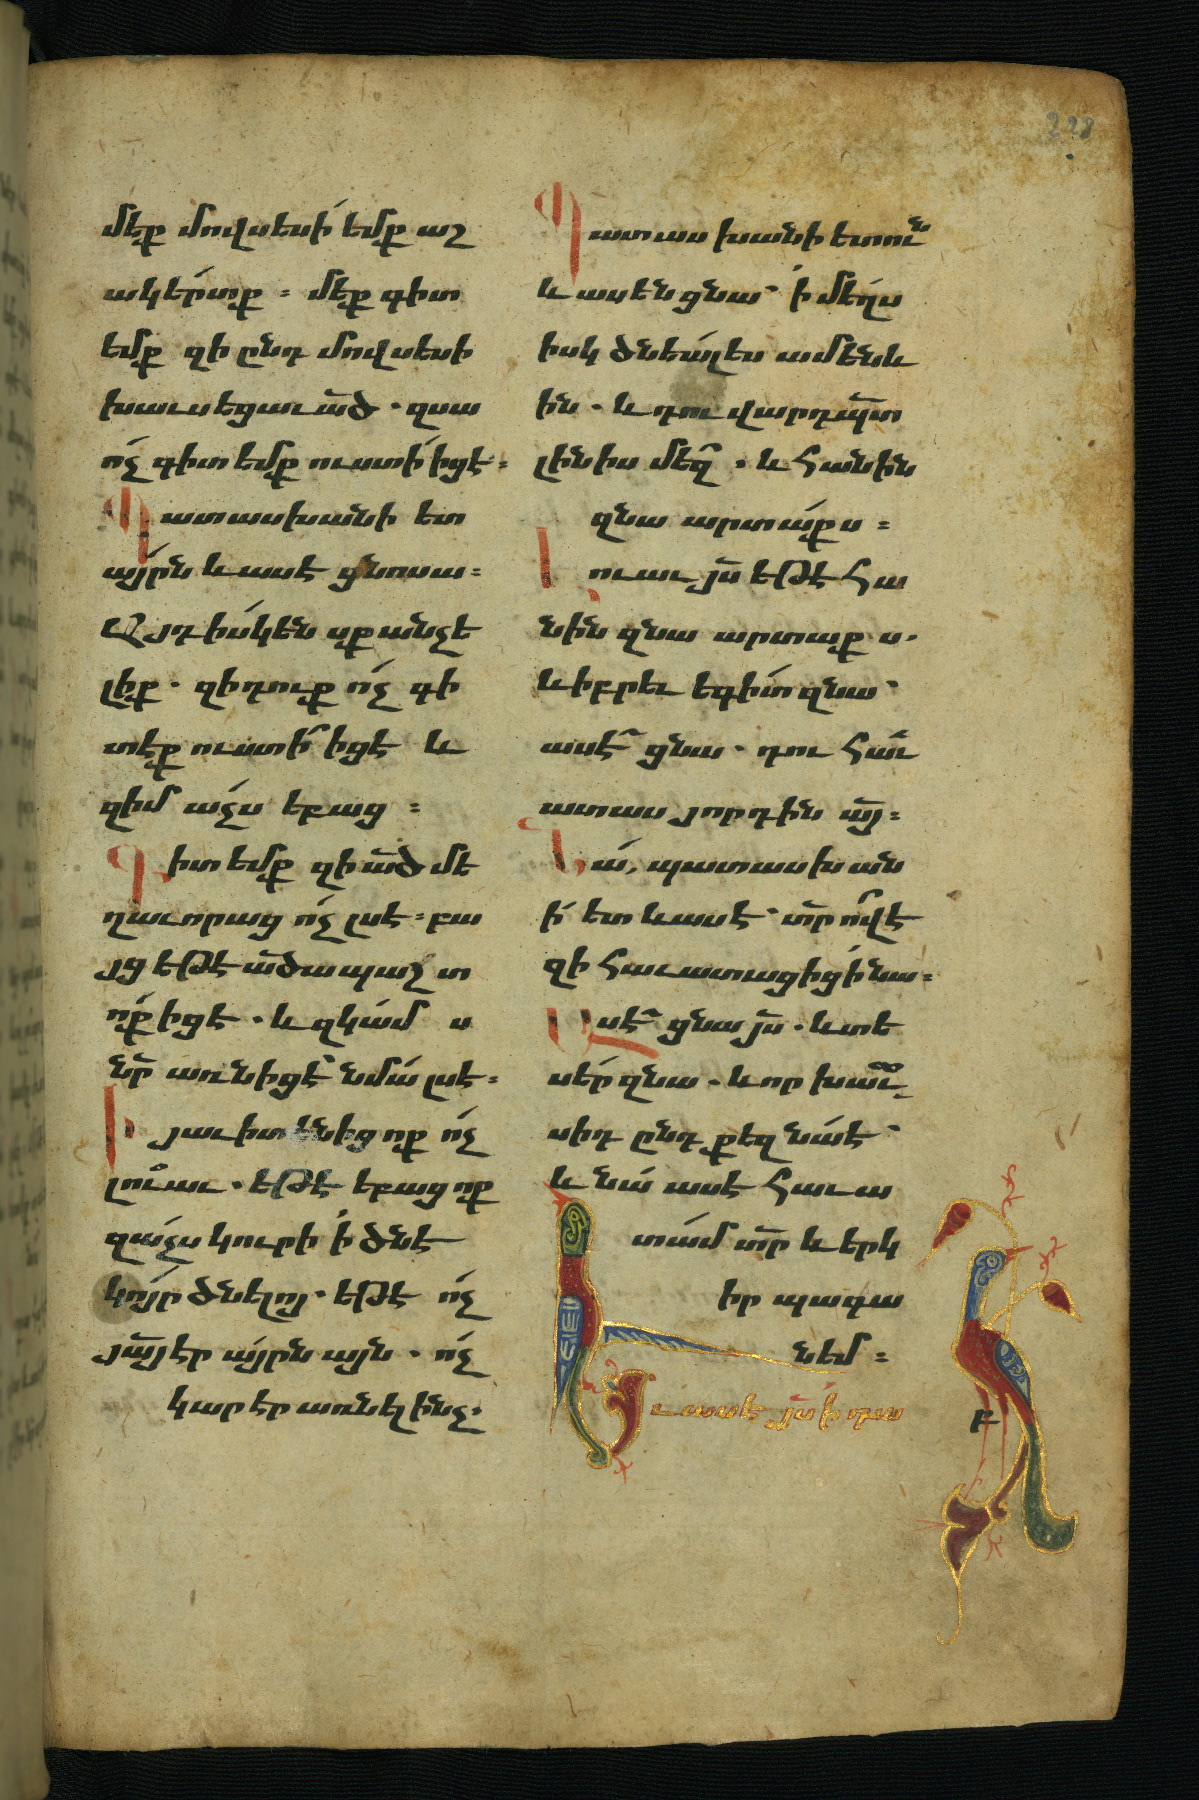 228
մեք մովսեսի եմք աշ
ակերտք ։ մեք գիտ
եմք զի ընդ մովսեսի
խաւսեցաւ ա̅ծ · զսա
ոչ գիտեմք ուստի իցէ ։
Պատասխանի ետ
այրն և ասէ ցնոսա ։
Այդ իսկ են սքանչե
լիք · զի դուք ոչ գի
տէք ուստի իցէ և
զիմ աչս եբաց ։
Գիտեմք զի ա̅ծ մե
ղաւորաց ոչ լսէ ։ բա
յց եթէ ա̅ծապաշտ
ոք իցէ · և զկամս
նր̅ առնիցէ նմա լսէ ։
Ի յաւիտենից ոք ոչ
լուաւ · եթէ եբաց ոք
զաչս կուրի ի ծնէ
կոյր ծնելոյ · եթէ ոչ
յա̅յ էր այրն այն · ոչ
կարէր առնել ինչ ·
Պատասխանի ետուն
և ասեն ցնա ՝ ի մեղս
իսկ ծնեալ ես ամենև
ին · և դու վարդպ̅տ
լինիս մեզ · և հանին
զնա արտաքս ։
Լուաւ յս̅ եթէ հա
նին զնա արտաքս ·
և իբրև եգիտ զնա ՝
ասէ ցնա · դու հաւ
ատաս յորդին ա̅յ ։
Նա, պատասխան
ի ետ և ասէ ՝ տր̅ ո՞վ է
զի հաւատացից ի նա ։
Ասէ ցնա յս̅ · և տե
սեր զնա · և որ խաւ
սիդ ընդ քեզ նա է ՝
և նա ասէ հաւա
տամ տր̅ և երկ
իր պագա
նեմ ։
Եւ ասէ յս̅ ի դա
Բ